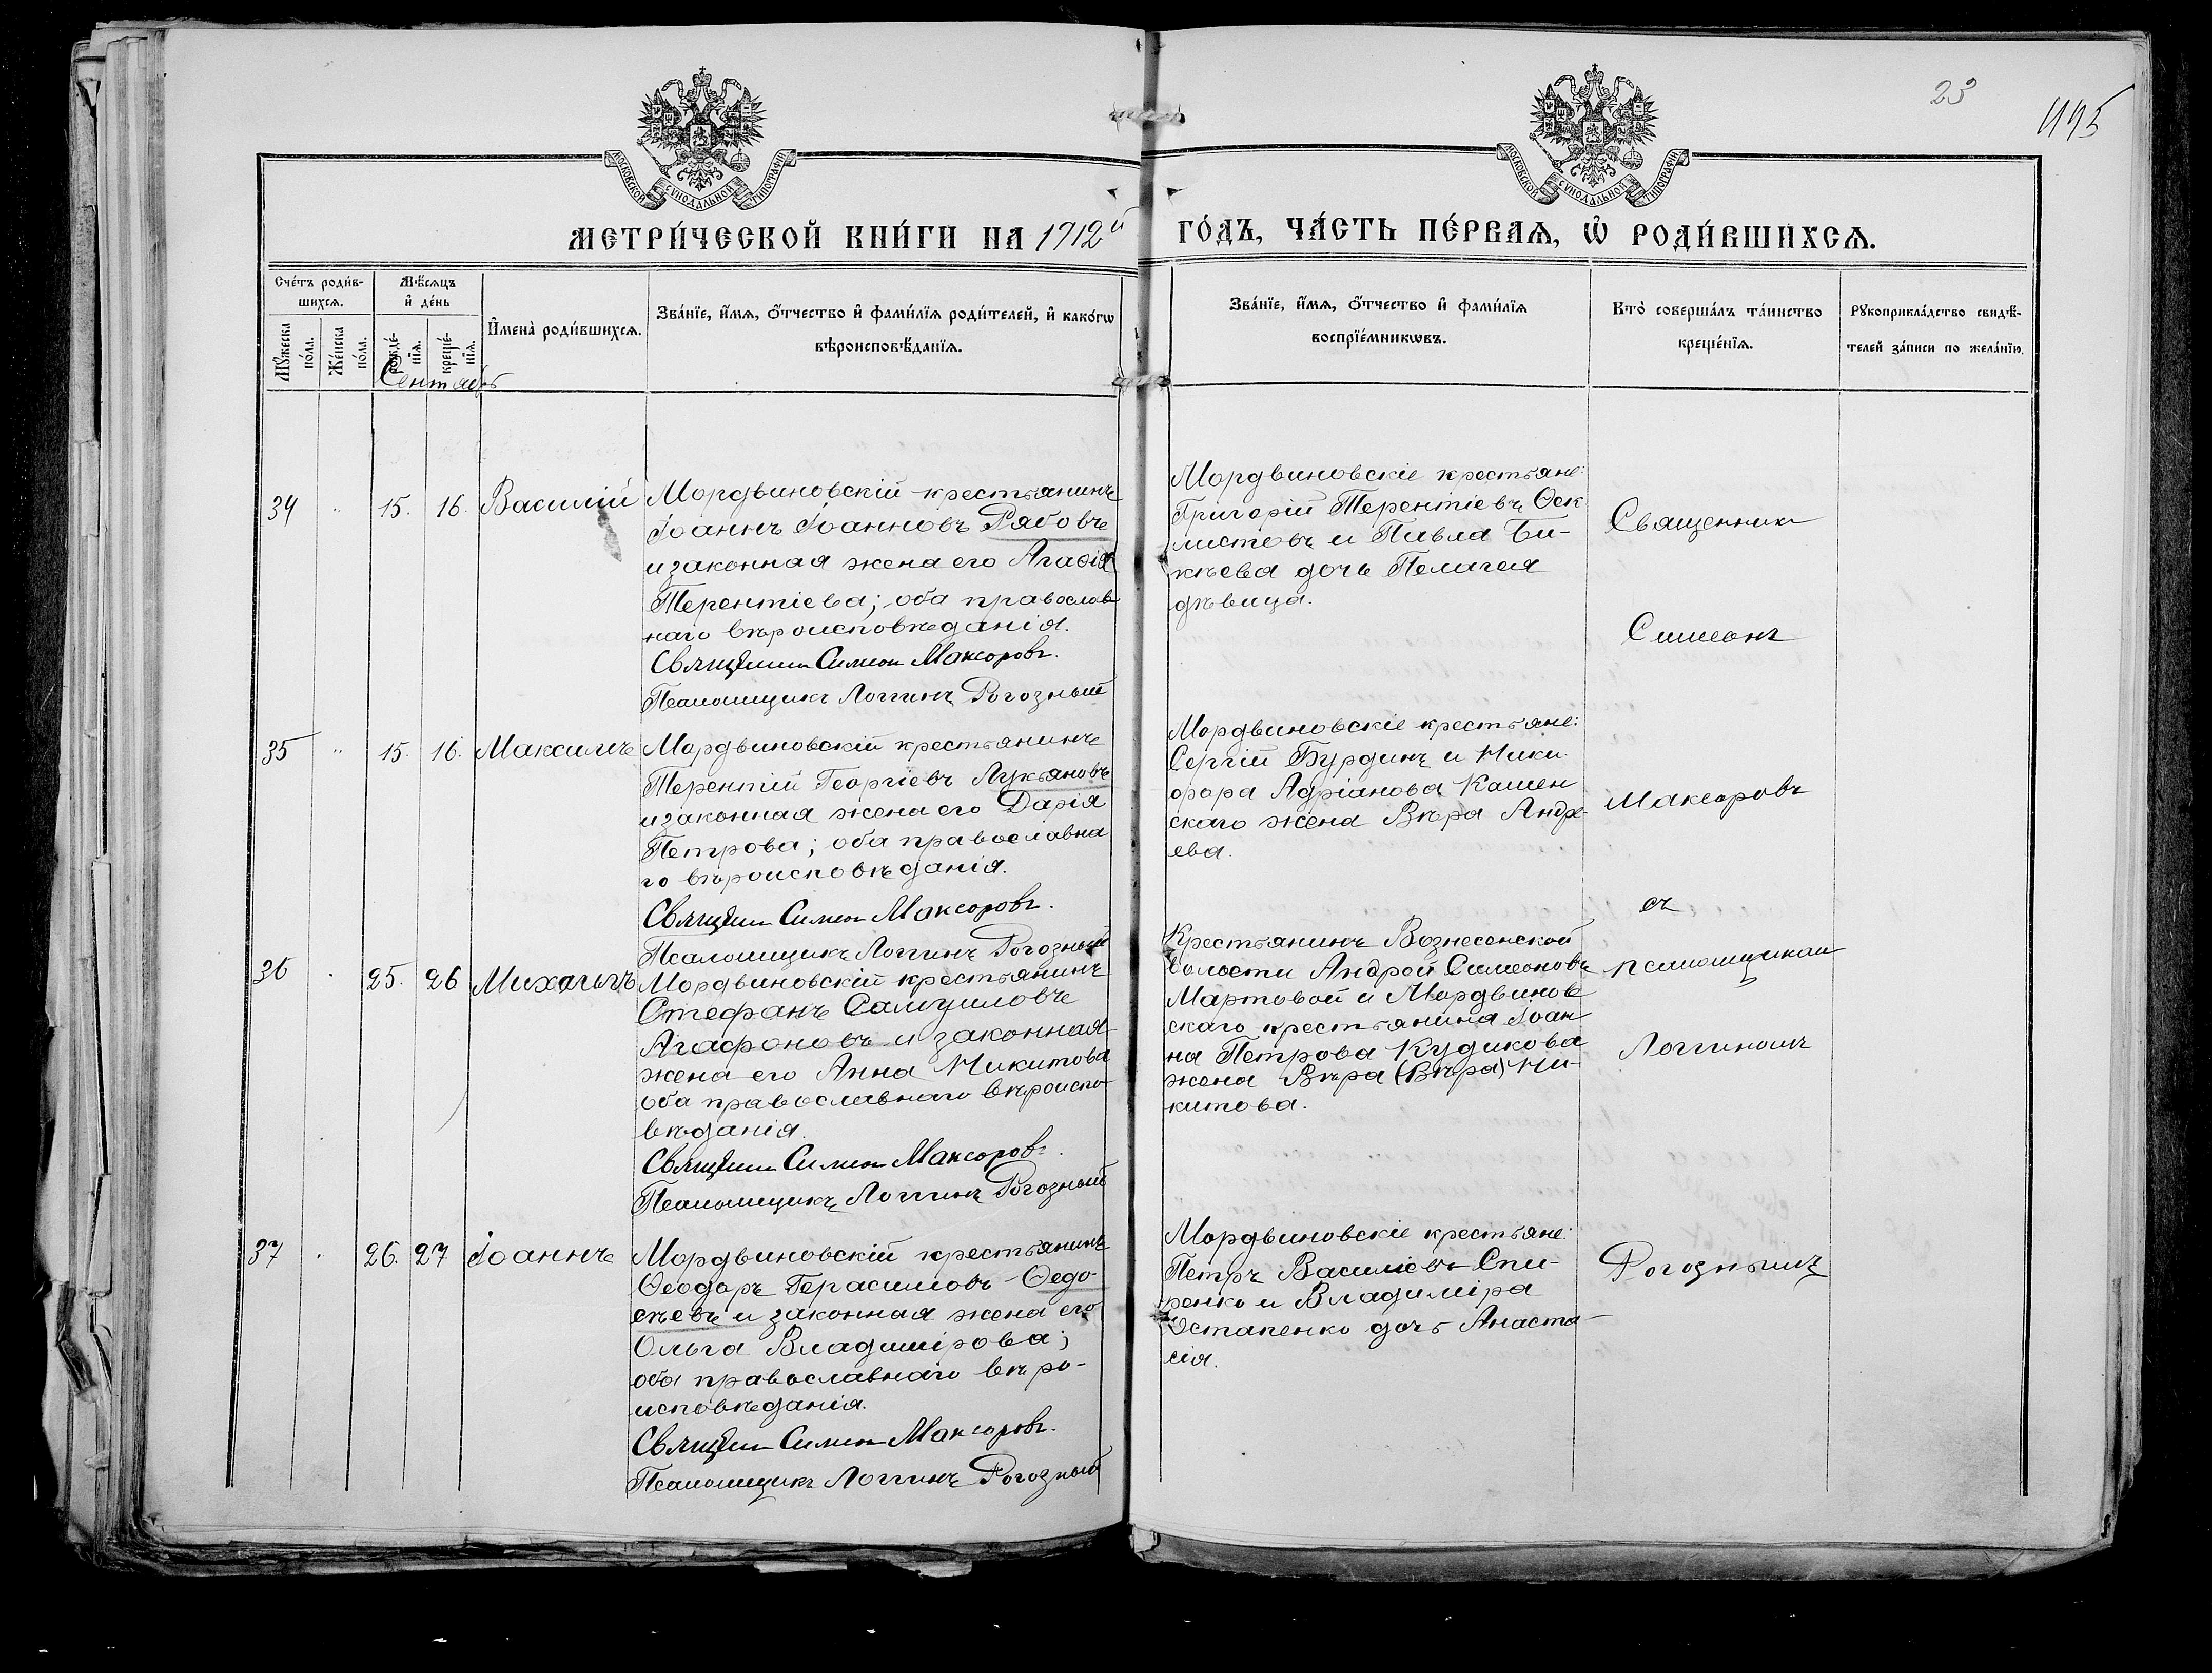 23
1195
МОСКОВСКОЙ СѴНОДАЛЬНОЙ ТИПОГРАФІИ
МОСКОВСКОЙ СѴНОДАЛЬНОЙ ТИПОГРАФІИ
МЕТРИ́ЧЕСКОЙ КНИ́ГИ НА 1912й ГО́ДЪ, ЧА́СТЬ ПЕ́РВАѦ, Ѽ РОДИ́ВШИХСѦ.
Сче́тъ роди́в-
шихсѧ.
Мꙋ́жеска по́ла.
Же́нска по́ла.
Мѣ́сѧцъ
и҆ де́нь
рожде́-
нїѧ.
креще́-
нїѧ.
И҆мена̀ роди́вшихсѧ.
Зва́нїе, и҆́мѧ, ѻ҆́тчество и҆ фами́лїѧ роди́телей, и҆ како́гѡ
вѣроисповѣ́данїѧ.
Зва́нїе, и҆́мѧ, ѻ҆́тчество и҆ фами́лїѧ
воспрїе́мникѡвъ.
Кто̀ соверша́лъ та́инство
креще́нїѧ.
Рꙋкоприкла́дство свидѣ́-
телей за́писи по жела́нїю.
Сентябрь
34 " 15. 16. Василій
Мордвиновскій крестьянинъ
Іоаннъ Іоанновъ Рябовъ
и законная жена его Агаѳія
Терентіева; оба православ
наго вѣроисповѣданія.
Священник Симеон Максоровъ.
Псаломщикъ Логгинъ Рогозный
Мордвиновскіе крестьяне:
Григорій Терентіевъ Ѳек
листовъ и Павла Би-
кѣева дочь Пелагея
дѣвица.
Священник
Симеонъ
35 " 15. 16. Максимъ
Мордвиновскій крестьянинъ
Терентій Георгіевъ Лукьяновъ
и законная жена его Дарія
Петрова; оба православна
го вѣроисповѣданія.
Священник Симеон Максоровъ.
Псаломщикъ Логгинъ Рогозный
Мордвиновскіе крестьяне:
Сергій Бурдинъ и Ники-
фора Адріанова Камен
скаго жена Вѣра Андре-
ева.
Максоровъ
съ
36 " 25. 26 Михаилъ
Мордвиновскій крестьянинъ
Стефанъ Самуиловъ
Агафоновъ и законная
жена его Анна Никитова
оба православнаго вѣроиспо-
вѣданія.
Священник Симеон Максоровъ.
Псаломщикъ Логгинъ Рогозный
Крестьянинъ Вознесенской
волости Андрей Симеоновъ
Мартовой и Мордвинов
скаго крестьянина Іоан
на Петрова Кудикова
жена Вѣра (Вѣра) Ни-
китова.
псаломщиком
Логгиномъ
37 " 26. 27 Іоаннъ
Мордвиновскій крестьянинъ
Ѳеодоръ Герасимовъ Ѳедо-
сѣевъ и законная жена его
Ольга Владимірова;
оба православнаго вѣро-
исповѣданія.
Священник Симеон Максоровъ.
Псаломщикъ Логгинъ Рогозный
Мордвиновскіе крестьяне:
Петръ Василіевъ Спи-
ренко и Владиміра
Остапенко дочь Анаста-
сія.
Рогознымъ